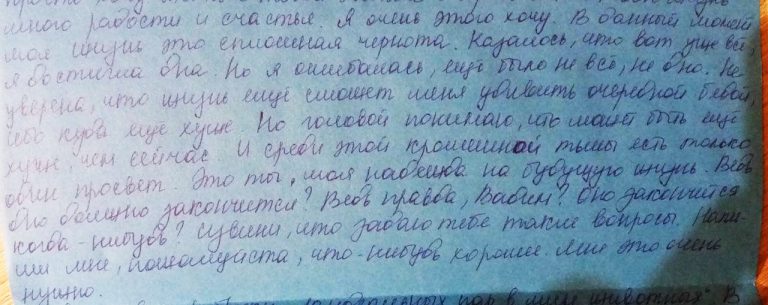 много радости и счастья. Я очень этого хочу. В данный момент
моя жизнь это сплошная чернота. Казалось, что вот уже всё,
я достигла дна. Но я ошибалась, ещё было не всё, не дно. Не
уверена, что жизнь ещё сможет меня удивить очередной бедой,
ибо куда ещё хуже. Но головой понимаю, что может быть ещё
хуже, чем сейчас. И среди этой крошечной тьмы есть только
один просвет. Это ты, моя надежда на будущую жизнь. Ведь
оно должно закончится? Ведь правда, Вадим? Оно закончится
когда-нибудь? Извини, что задаю тебе такие вопросы. Напи-
ши мне, пожалуйста, что-нибудь хорошее. Мне это очень
нужно.